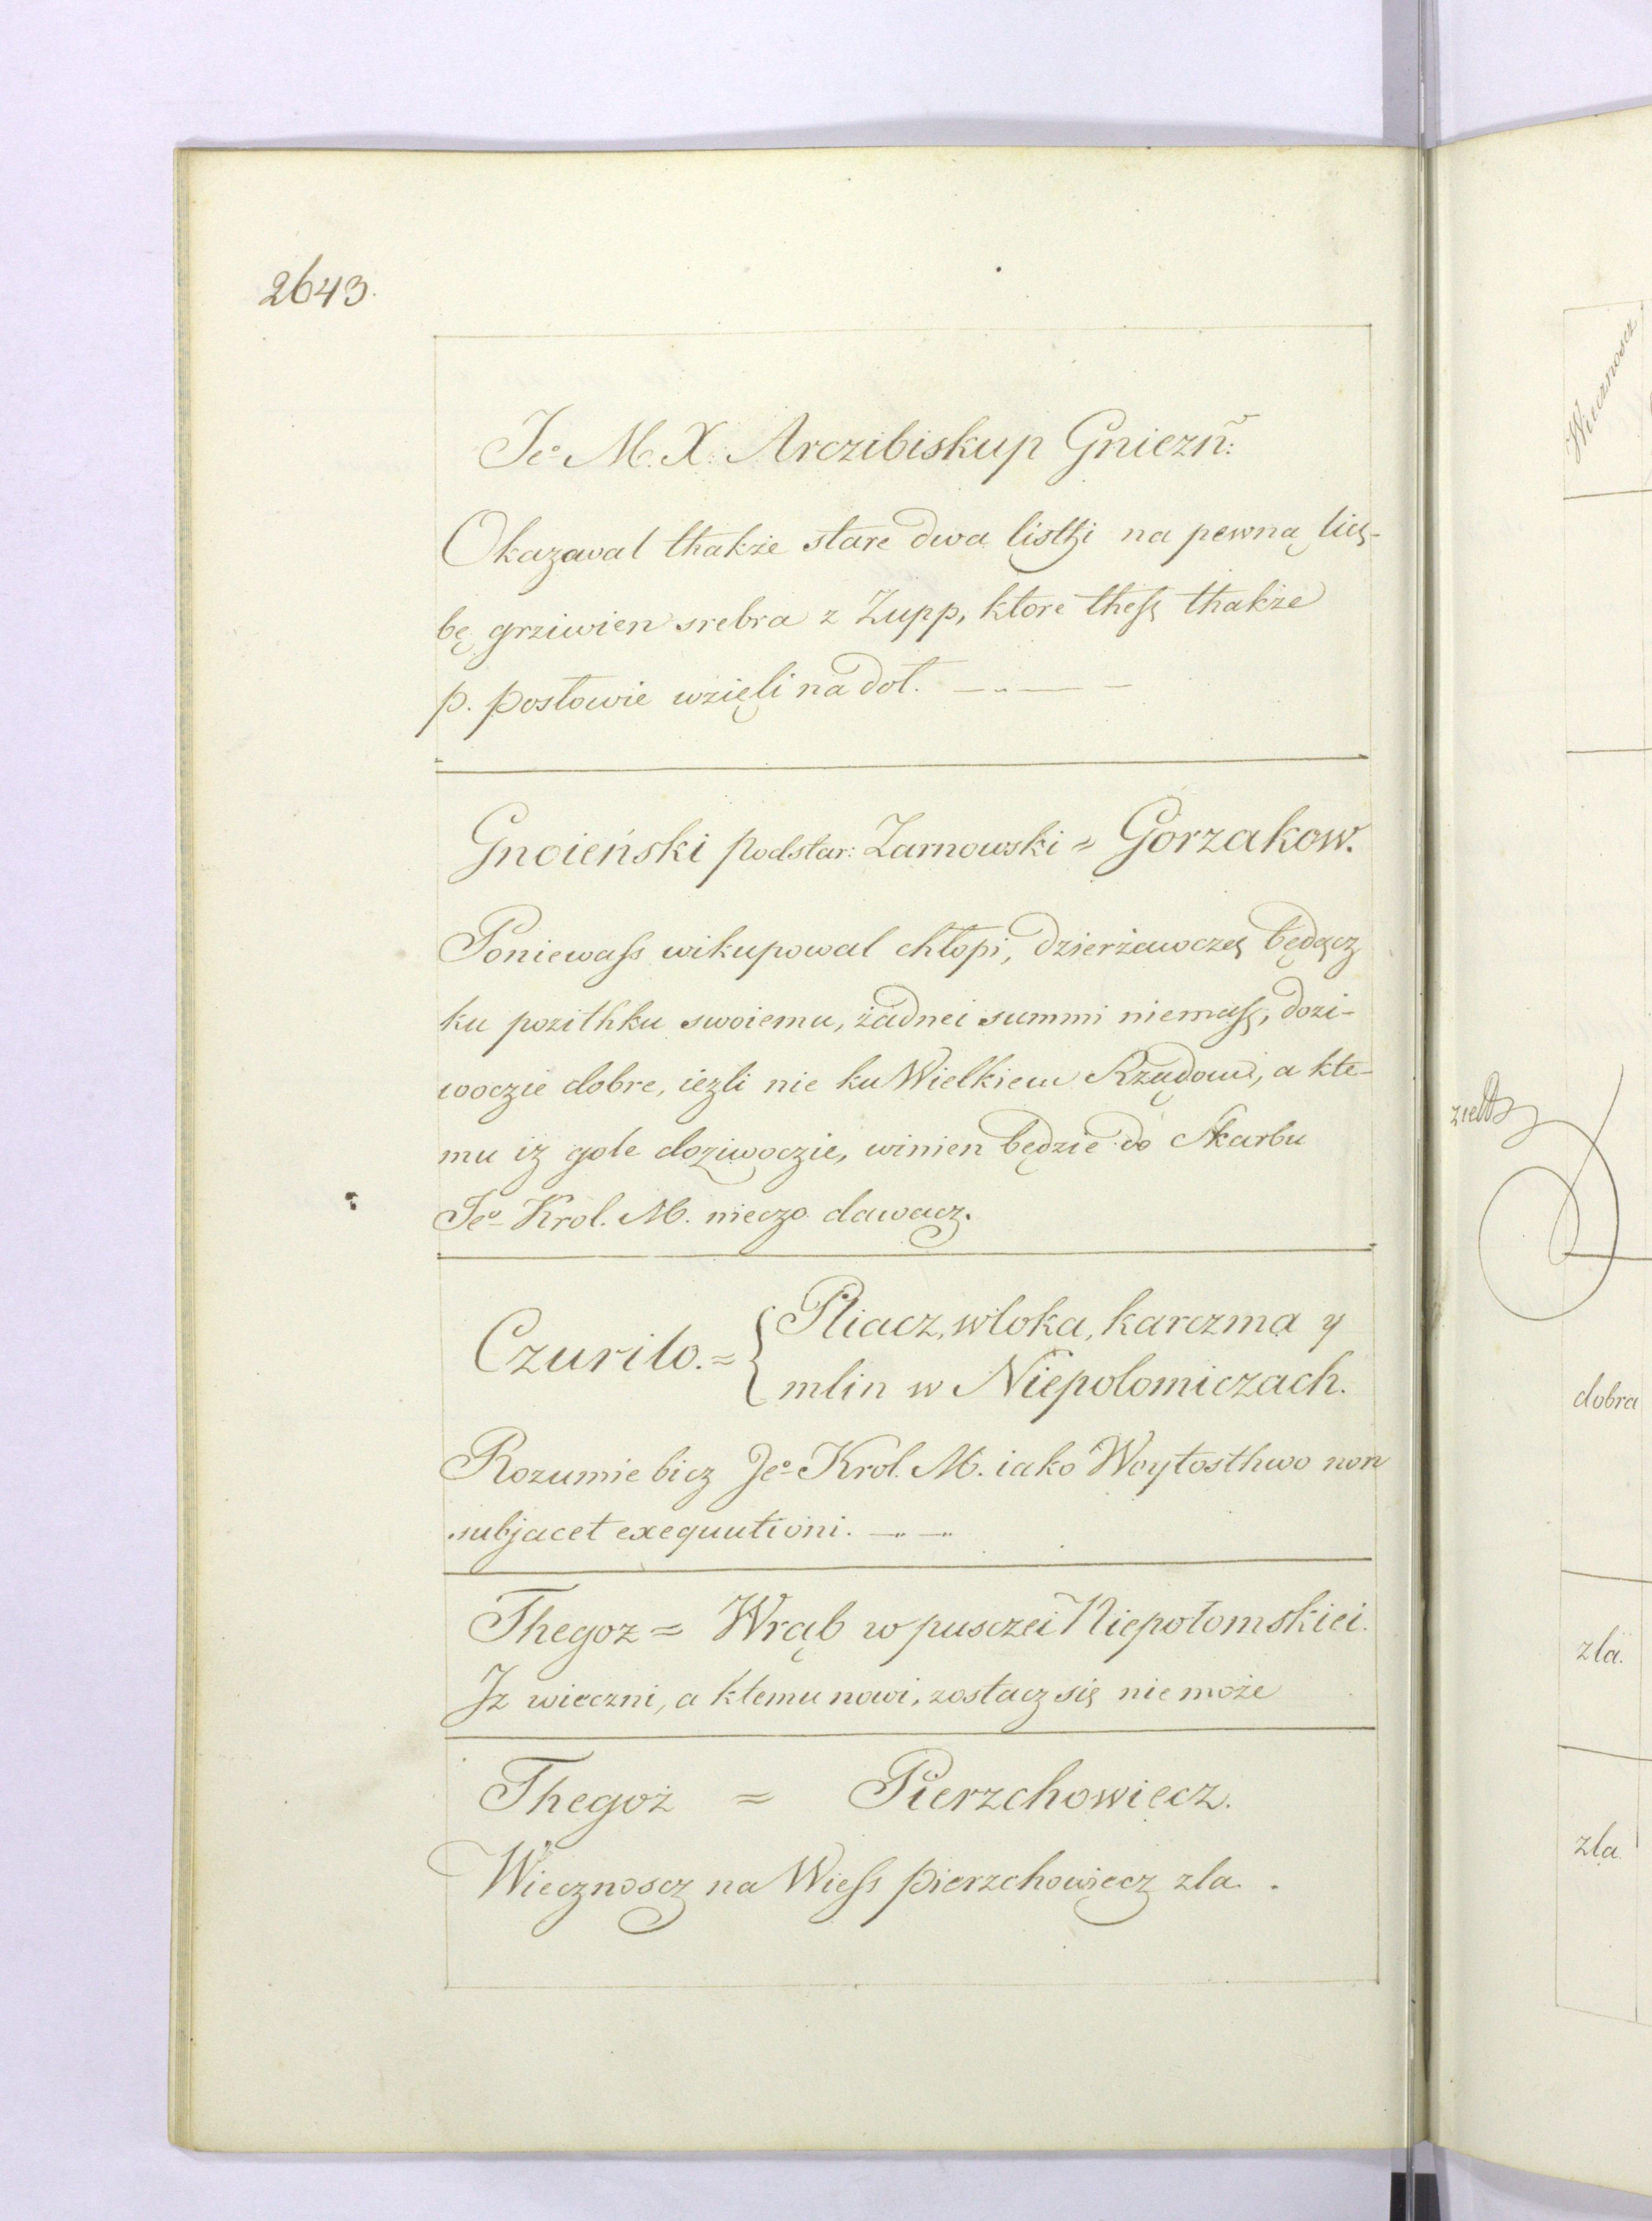 2643.
Jeº M. X. Arczibiskup Gniezñ:
Okazawal thakże stare dwa listhi na pewną licz-
bę grziwien srebra z Zupp, ktore thesz thakże
p. posłowie wzięli na dół.
Gnoieński podstar: Zarnowski = Gorzakow.
Poniewass wikupowal chłopi, dzierżawczą będącz
ku pozithku swoiemu, żadnei summi niemasz, dozi-
woczie dobre, iezli nie ku Wielkiem Rządowi, a kte-
mu iz gole doziwoczie, winien będzie do Skarbu
Jeº Krol. M. nieczo dawacz.
Czurilo. = Pliacz, wloka, karczma y
mlin w Niepolomiczach.
Rozumie bicz Jeº Krol. M. iako Woytosthwo non
subjacet exequutioni.
Thegoz = Wrąb w pusczei Niepołomskiei.
Iz wieczni, a ktemu nowi, zostacz się nie może
Thegoż = Pierzchowiecz.
Wiecznoscz na Wiess pierzchowiecz zla.
Wiecznoscz
dobra
zla.
zla